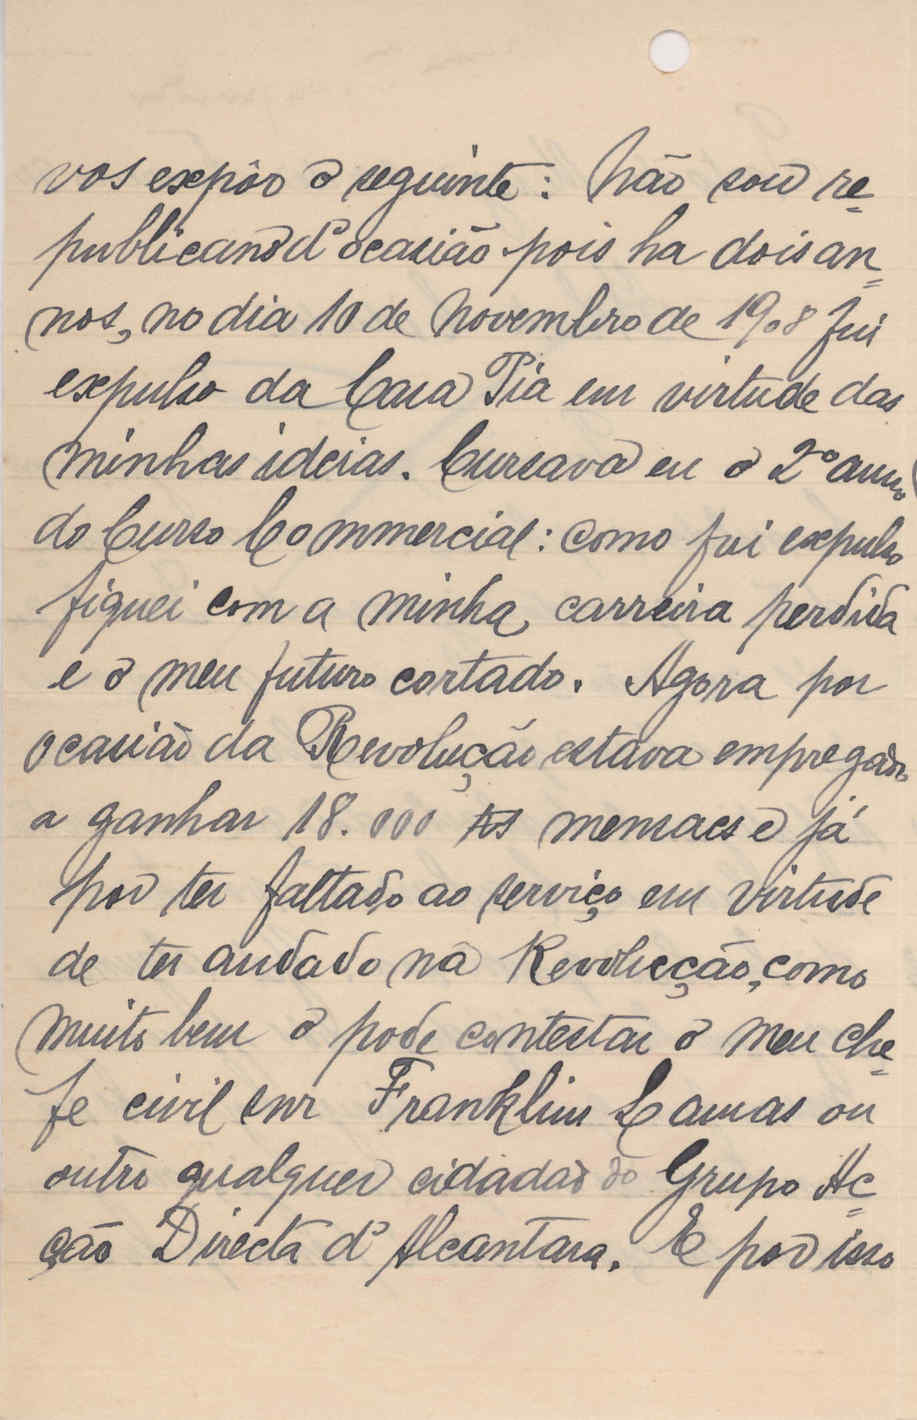 vos expôr o seguinte: Não sou re=
publicano d'ocasião pois ha dois an=
nos, no dia 10 de Novembro de 1908 fui
expulso da Casa Pia em virtude das
minhas ideias. Cursava eu o 2º anno
do Curso Commercial: como fui expulso
fiquei com a minha carreira perdida
e o meu futuro cortado. Agora por
ocasião da Revolução estava empregado
a ganhar 18.000 rs mensaes e já
por ter faltado ao serviço em virtude
de ter andado na Revolucção, como
muito bem o pode contestar o meu che=
fe civil snr Franklim Lamas ou
outro qualquer cidadão do Grupo Ac=
ção Directa d'Alcantara. E por isso